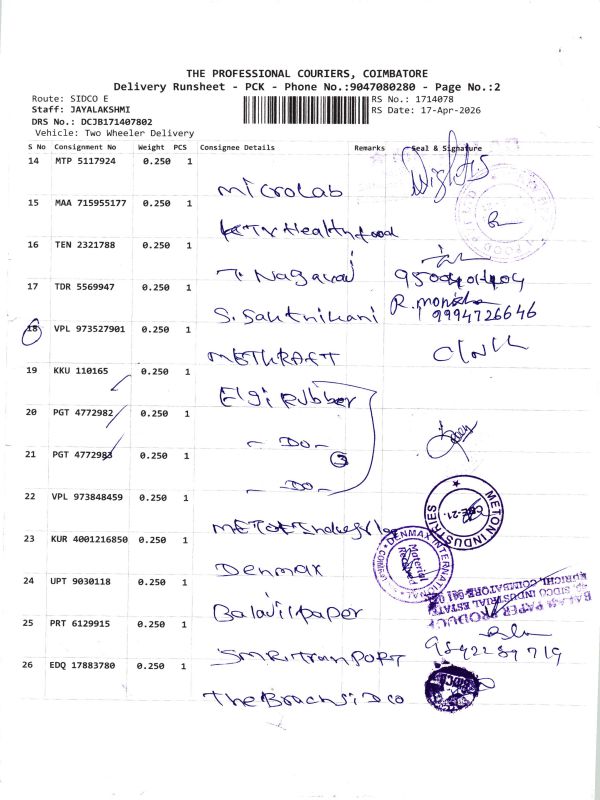 THE PROFESSIONAL COURIERS, COIMBATORE
Delivery Runsheet - PCK - Phone No.:9047080280 - Page No.:2
Route: SIDCO E
RS No.: 1714078
Staff: JAYALAKSHMI
RS Date: 17-Apr-2026
DRS No.: DCJB171407802
Vehicle: Two Wheeler Delivery
S No Consignment No Weight PCS Consignee Details Remarks Seal & Signature
14 MTP 5117924 0.250 1
Microlab
15 MAA 715955177 0.250 1
Healthfood
16 TEN 2321788 0.250 1
T. Nagaraj
17 TDR 5569947 0.250 1
S. R. monisha
9994726646
18 VPL 973527901 0.250 1
METKRAFT
19 KKU 110165 0.250 1
Elgi Rubber
20 PGT 4772982 0.250 1
- DO -
21 PGT 4772983 0.250 1
3
- DO -
22 VPL 973848459 0.250 1
METON INDUSTRIES
CBE-21.
23 KUR 4001216850 0.250 1
Denmax
DENMAX INTERNATIONAL
Material Received
24 UPT 9030118 0.250 1
Balaji paper
BALAJI PAPER PRODUCT
SIDCO INDUSTRIAL ESTATE
KURICHI, COIMBATORE 641 021
25 PRT 6129915 0.250 1
SMR Tranport
9842289719
26 EDQ 17883780 0.250 1
The Brach SiDco